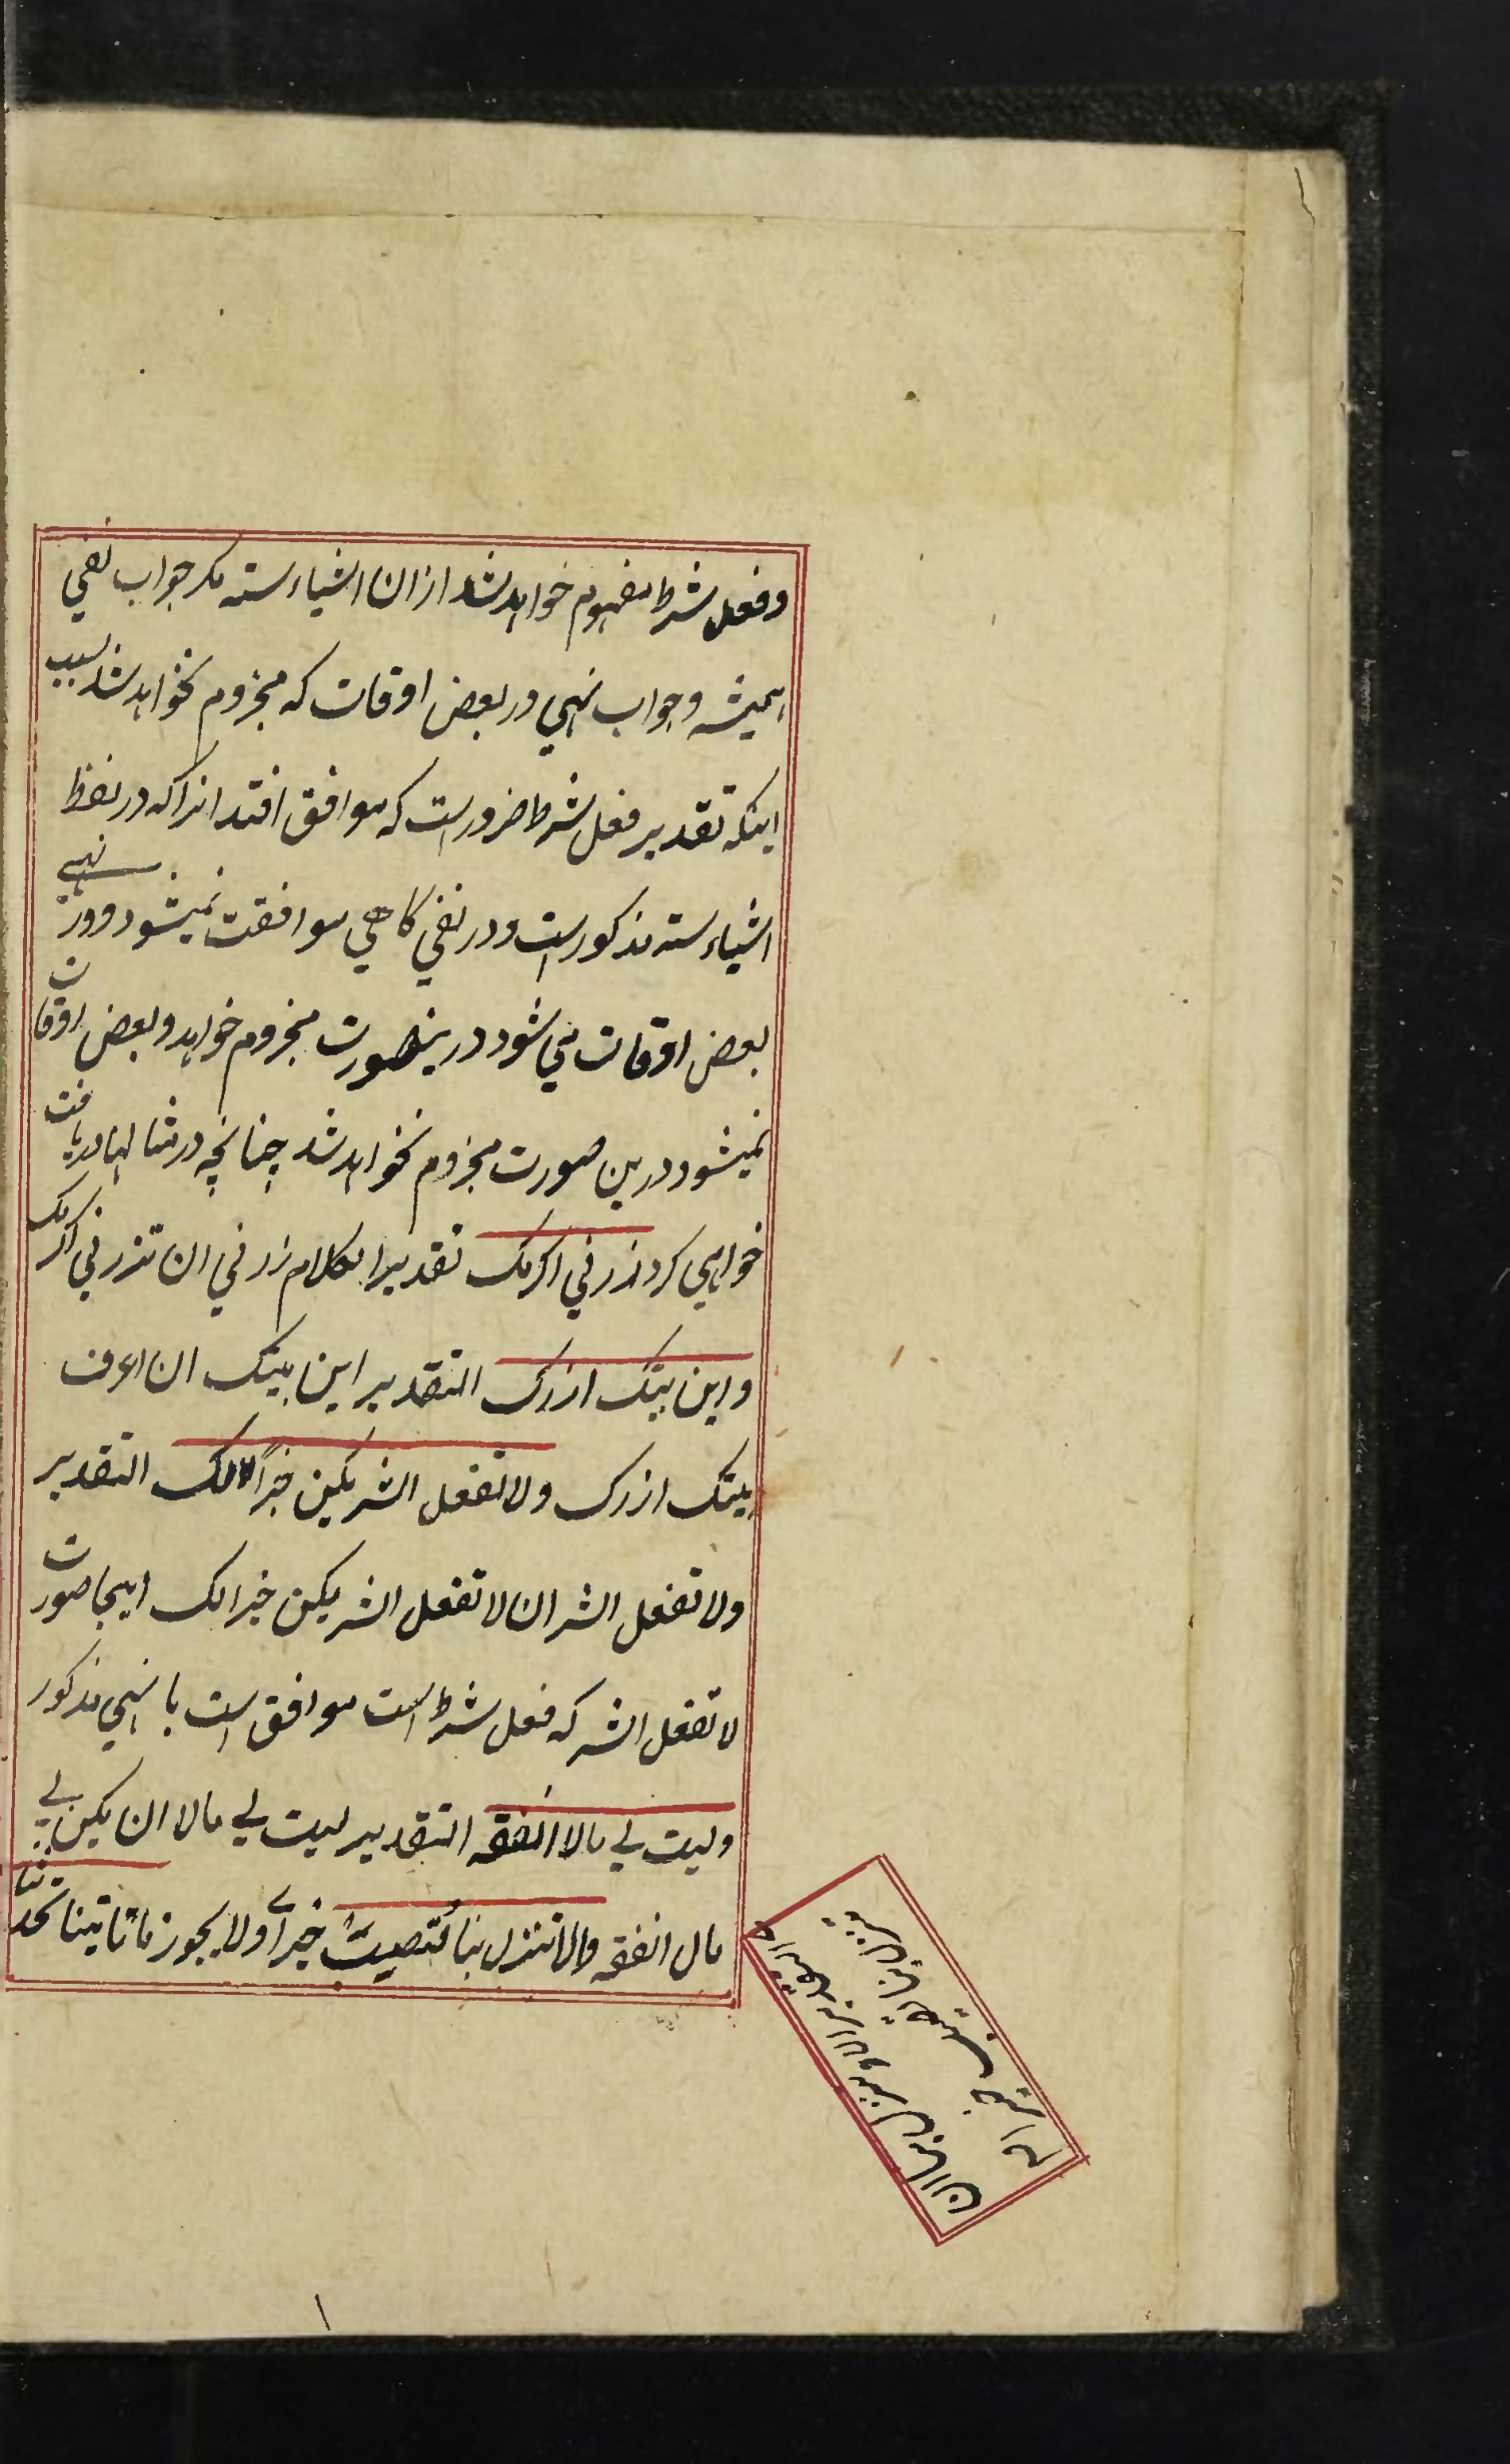 وفعل شرط مفهوم خواهد شد از ان اشیاء سته مکر جواب نفي
همیشه وجواب نهي در بعض اوقات که مجزوم نخواهد شد بسبب
اینکه تقدیر فعل شرط ضرور است که موافق افتد انرا که در لفظ
اشیاء سته مذکور است ودر نفي کاهي موافقت نمیشود ودر نهي
بعض اوقات مي شود درینصورت مجزوم خواهد وبعض اوقات
نمیشود درین صورت مجزوم نخواهد شد چنانچه در مثالها دریافت
خواهي کرد زرني اکرمک تقدیر الکلام زرني ان تزرني اکرمک
واین بیتک ازرک التقدیر این بیتک ان اعرف
بیتک ازرک ولا تفعل الشر یکن خیرًا لک التقدیر
ولا تفعل الشر ان لا تفعل الشر یکن خیرا لک اینجا صورت
لا تفعل الشر که فعل شرط است موافق است با نهي مذکور
ولیت لي مالا انفقه التقدیر لیت لي مالا ان یکن لي
مال انفقه والا تنزل بنا تصیب خیرًا ولا یجوز ما تاتینا تحدثنا